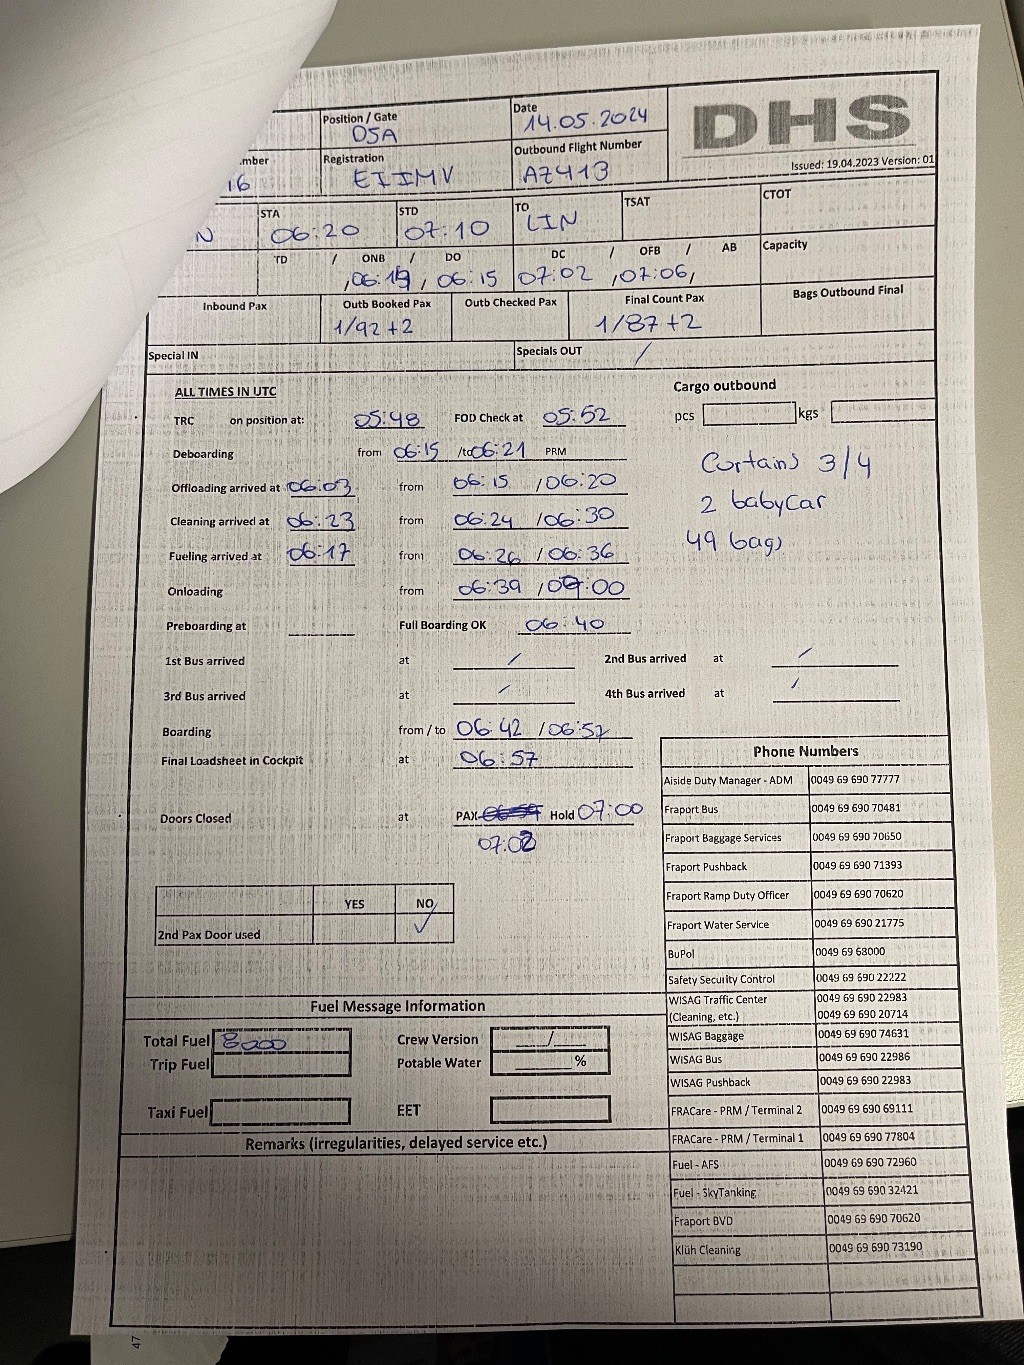 Position / Gate
D5A
Date
14.05.2024
DHS
Issued: 19.04.2023 Version: 01
mber
16
Registration
EIIMV
Outbound Flight Number
AZ413
N
STA
06:20
STD
07:10
TO
LIN
TSAT
CTOT
TD / ONB / DO
, 06:19 , 06:15
DC / OFB / AB
07:02 , 07:06,
Capacity
Inbound Pax
Outb Booked Pax
1/92+2
Outb Checked Pax
Final Count Pax
1/87+2
Bags Outbound Final
Special IN
Specials OUT /
ALL TIMES IN UTC
Cargo outbound
TRC on position at: 05:48 FOD Check at 05:52
pcs kgs
Deboarding from 06:15 /to 06:21 PRM
Curtains 3/4
Offloading arrived at 06:03 from 06:15 /06:20
2 babycar
Cleaning arrived at 06:23 from 06:24 /06:30
49 bags
Fueling arrived at 06:17 from 06:26 /06:36
Onloading from 06:39 /07:00
Preboarding at Full Boarding OK 06:40
1st Bus arrived at / 2nd Bus arrived at /
3rd Bus arrived at / 4th Bus arrived at /
Boarding from / to 06:42 /06:57
Final Loadsheet in Cockpit at 06:57
Doors Closed at PAX Hold 07:00
07:02
YES NO
2nd Pax Door used ✓
Phone Numbers
Aiside Duty Manager - ADM 0049 69 690 77777
Fraport Bus 0049 69 690 70481
Fraport Baggage Services 0049 69 690 70650
Fraport Pushback 0049 69 690 71393
Fraport Ramp Duty Officer 0049 69 690 70620
Fraport Water Service 0049 69 690 21775
BuPol 0049 69 68000
Safety Security Control 0049 69 690 22222
WISAG Traffic Center 0049 69 690 22983
(Cleaning, etc.) 0049 69 690 20714
WISAG Baggage 0049 69 690 74631
WISAG Bus 0049 69 690 22986
WISAG Pushback 0049 69 690 22983
FRACare - PRM / Terminal 2 0049 69 690 69111
FRACare - PRM / Terminal 1 0049 69 690 77804
Fuel - AFS 0049 69 690 72960
Fuel - SkyTanking 0049 69 690 32421
Fraport BVD 0049 69 690 70620
Klüh Cleaning 0049 69 690 73190
Fuel Message Information
Total Fuel 8000
Crew Version /
Trip Fuel
Potable Water %
Taxi Fuel
EET
Remarks (irregularities, delayed service etc.)
47